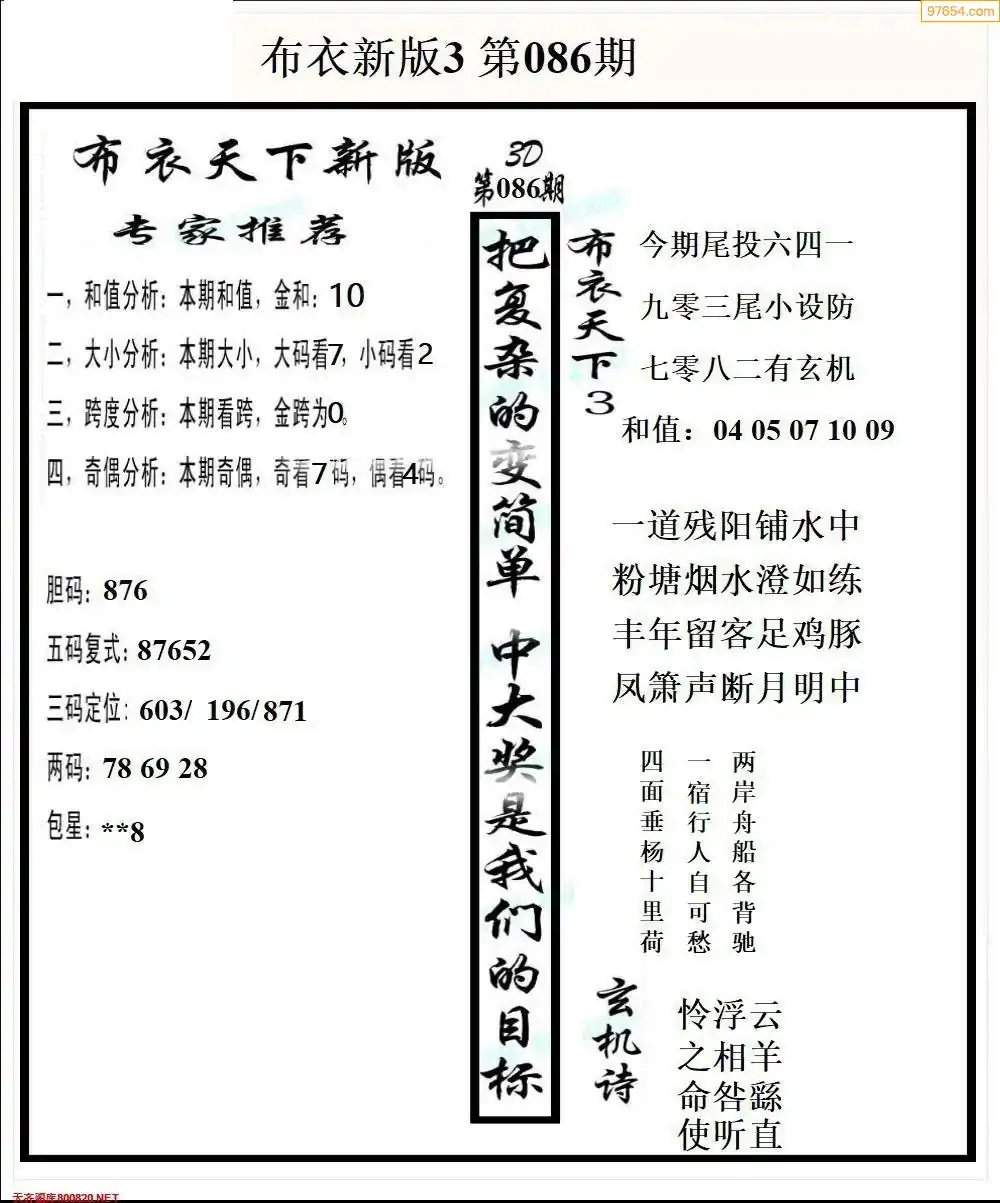 97654.com
布衣新版3 第086期
布衣天下新版
专家推荐
一，和值分析：本期和值，金和：10
二，大小分析：本期大小，大码看7，小码看2
三，跨度分析：本期看跨，金跨为0。
四，奇偶分析：本期奇偶，奇看7码，偶看4码。
胆码：876
五码复式：87652
三码定位：603/ 196/871
两码：78 69 28
包星：**8
3D
第086期
把复杂的变简单 中大奖是我们的目标
布衣天下3
今期尾投六四一
九零三尾小设防
七零八二有玄机
和值：04 05 07 10 09
一道残阳铺水中
粉塘烟水澄如练
丰年留客足鸡豚
凤箫声断月明中
两岸舟船各背驰
一宿行人自可愁
四面垂杨十里荷
玄机诗
怜浮云
之相羊
命咎繇
使听直
天齐图库800820.NET